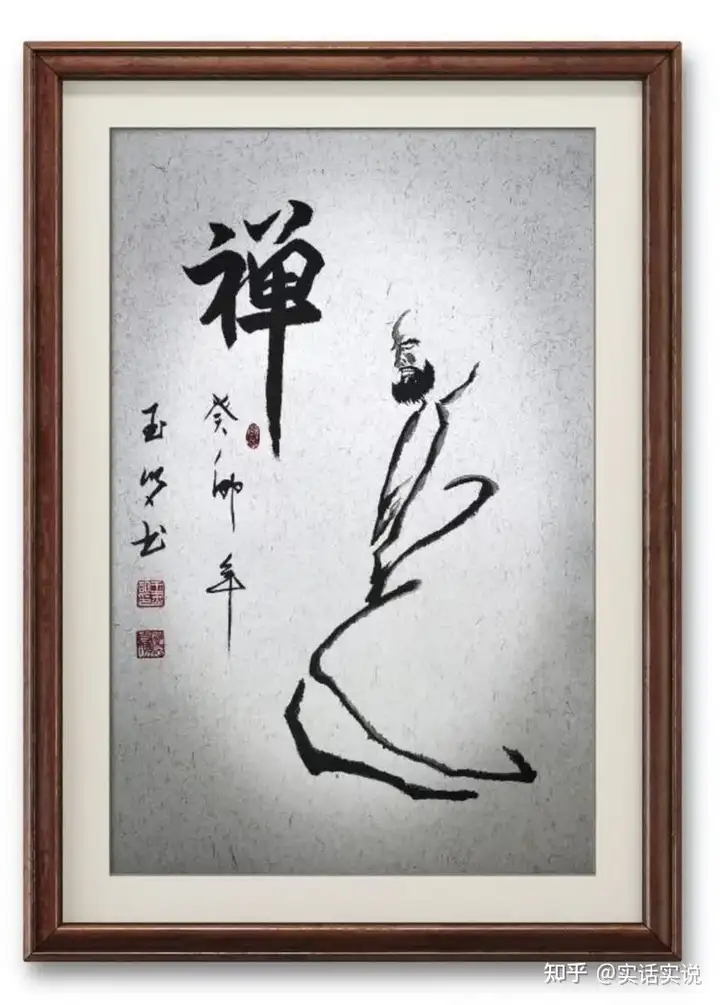 禅
癸卯年
玉
书
知乎 @实话实说